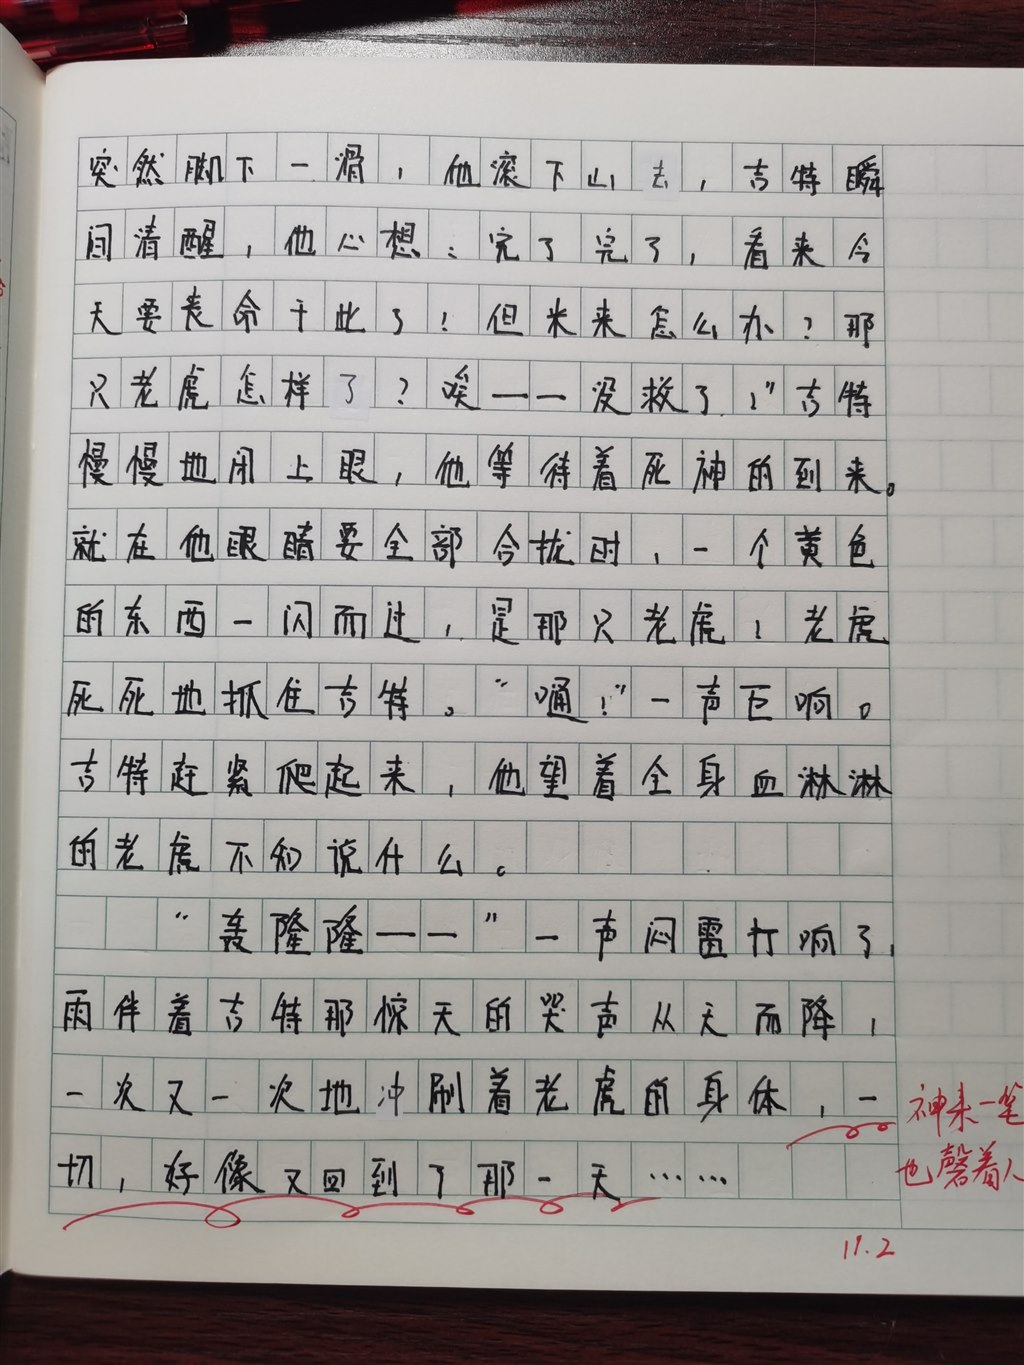 突然脚下一滑，他滚下山去，吉特瞬
间清醒，他心想：完了完了，看来今
天要丧命于此了！但米来怎么办？那
只老虎怎样了？唉——没救了！”吉特
慢慢地闭上眼，他等待着死神的到来。
就在他眼睛要全部合拢时，一个黄色
的东西一闪而过，是那只老虎！老虎
死死地抓住吉特。“嗵！”一声巨响。
吉特赶紧爬起来，他望着全身血淋淋
的老虎不知说什么。
“轰隆隆——”一声闷雷打响了，
雨伴着吉特那惊天的哭声从天而降，
一次又一次地冲刷着老虎的身体，一
切，好像又回到了那一天……
神来一笔
也罄着人
11.2